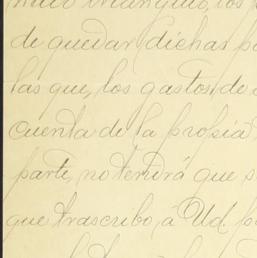 de quedar dichas
las que, los gastos de
cuenta de la propia
parte, no tendrá que
que trascribo, á Ud.